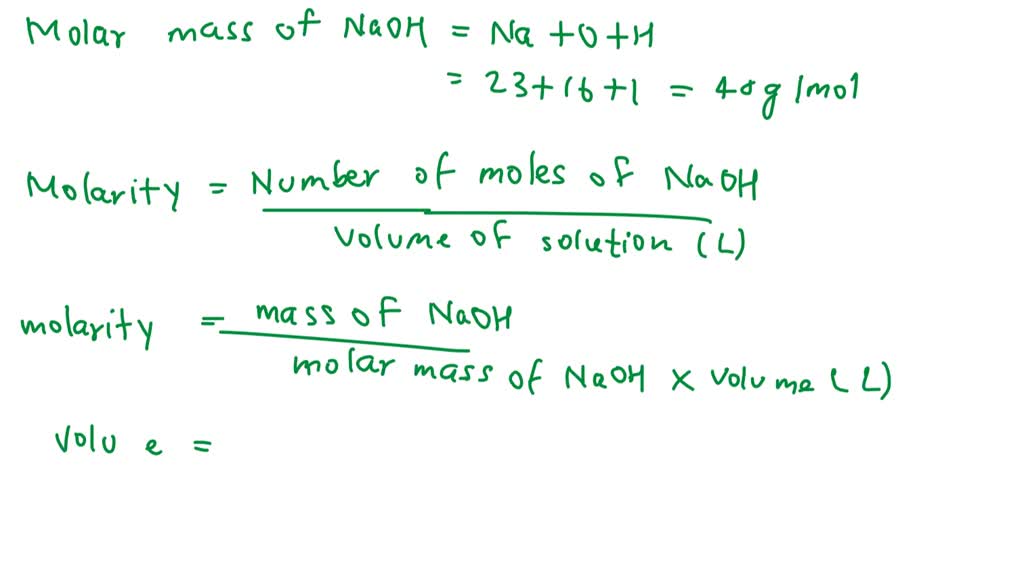 Molar mass of NaOH = Na + O + H
= 23 + 16 + 1 = 40g/mol
Molarity = Number of moles of NaOH
volume of solution (L)
molarity = mass of NaOH
molar mass of NaOH x volume (L)
volu e =